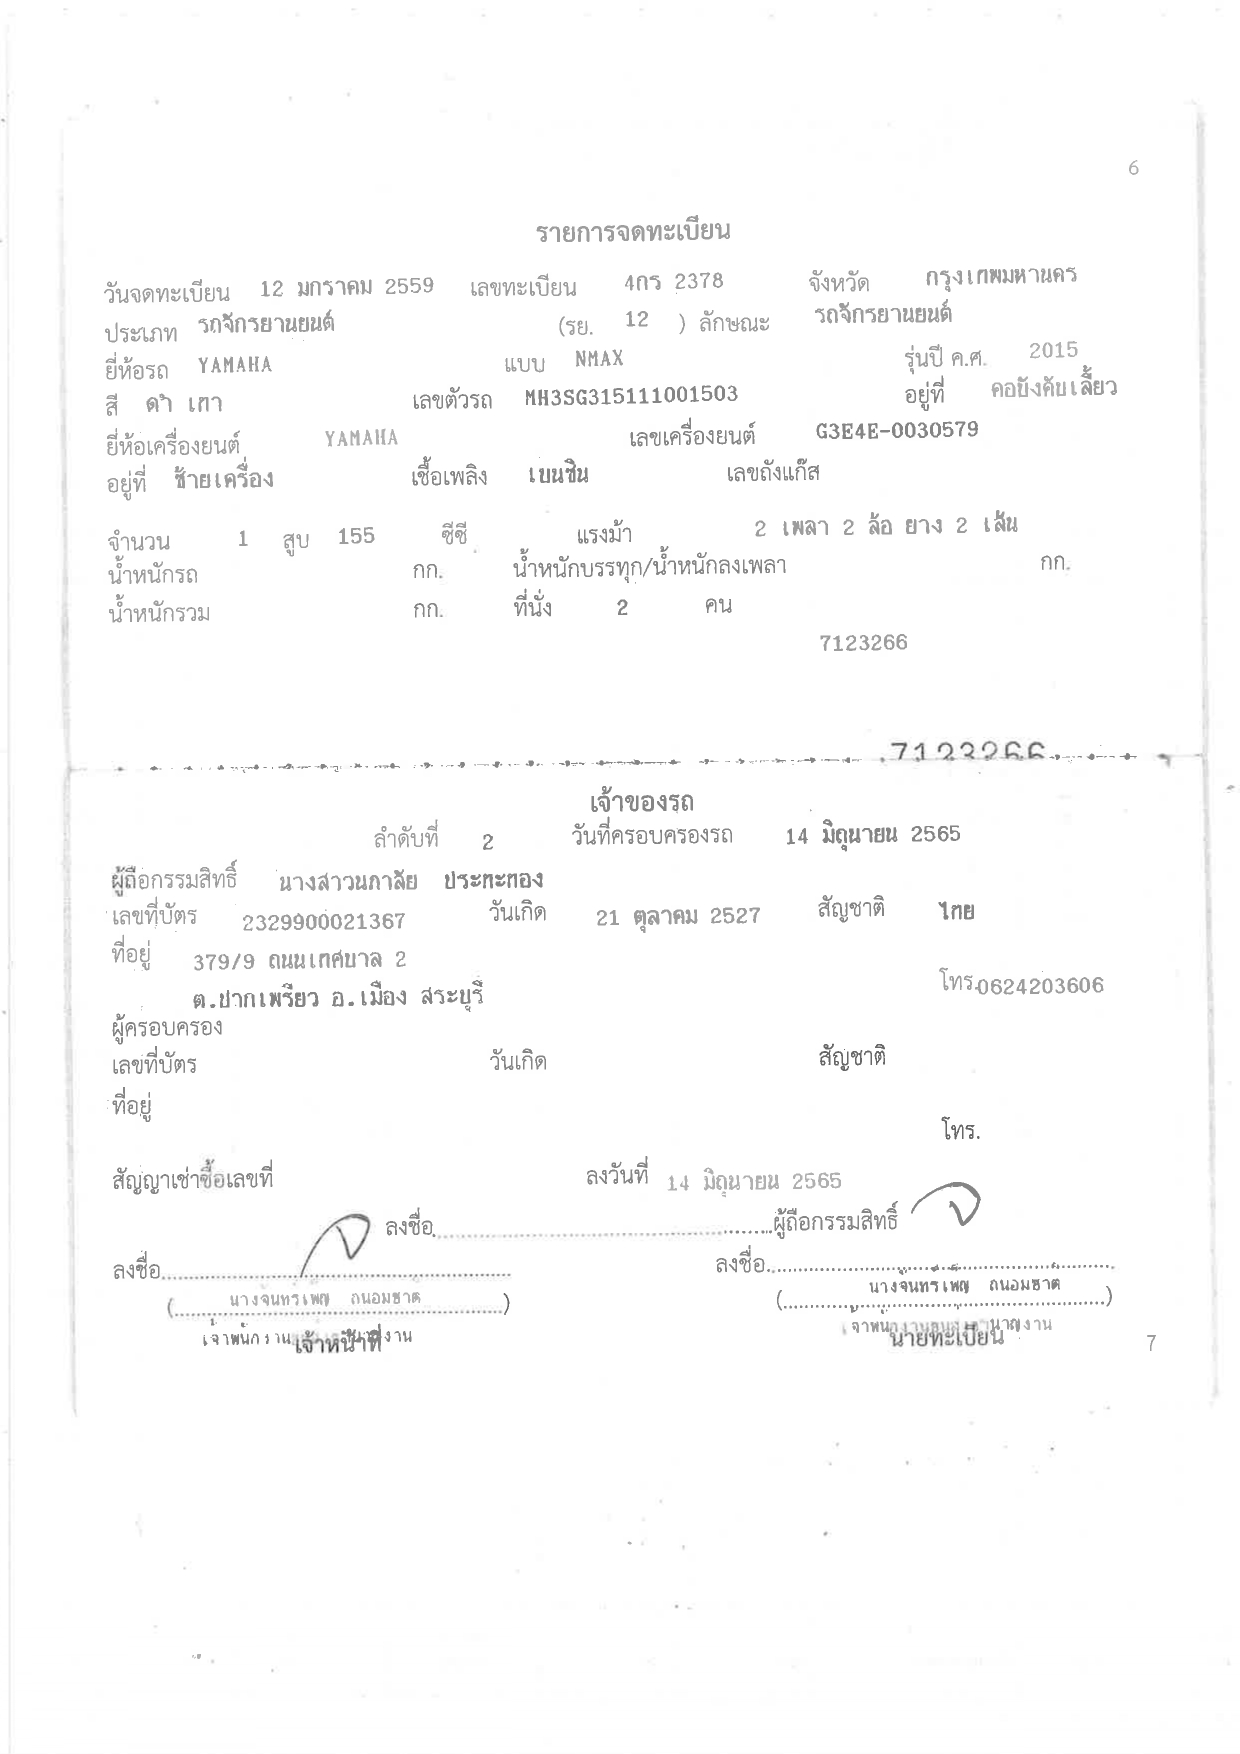 6
รายการจดทะเบียน
วันจดทะเบียน 12 มกราคม 2559 เลขทะเบียน 4กร 2378 จังหวัด กรุงเทพมหานคร
ประเภท รถจักรยานยนต์ (รย. 12 ) ลักษณะ รถจักรยานยนต์
ยี่ห้อรถ YAMAHA แบบ NMAX รุ่นปี ค.ศ. 2015
สี ดำ เทา เลขตัวรถ MH3SG315111001503 อยู่ที่ คอบังคับเลี้ยว
ยี่ห้อเครื่องยนต์ YAMAHA เลขเครื่องยนต์ G3E4E-0030579
อยู่ที่ ซ้ายเครื่อง เชื้อเพลิง เบนซิน เลขถังแก๊ส
จำนวน 1 สูบ 155 ซีซี แรงม้า 2 เพลา 2 ล้อ ยาง 2 เส้น
น้ำหนักรถ กก. น้ำหนักบรรทุก/น้ำหนักลงเพลา กก.
น้ำหนักรวม กก. ที่นั่ง 2 คน
7123266
7123266
เจ้าของรถ
ลำดับที่ 2 วันที่ครอบครองรถ 14 มิถุนายน 2565
ผู้ถือกรรมสิทธิ์ นางสาววนกาลัย ประทะทอง
เลขที่บัตร 2329900021367 วันเกิด 21 ตุลาคม 2527 สัญชาติ ไทย
ที่อยู่ 379/9 ถนนเทศบาล 2
ต.ปากเพรียว อ.เมือง สระบุรี โทร.0624203606
ผู้ครอบครอง
เลขที่บัตร วันเกิด สัญชาติ
ที่อยู่
โทร.
สัญญาเช่าซื้อเลขที่ ลงวันที่ 14 มิถุนายน 2565
ลงชื่อ ผู้ถือกรรมสิทธิ์
ลงชื่อ ลงชื่อ
(นางจันทร์เพ็ญ ถนอมธาต) (นางจันทร์เพ็ญ ถนอมธาต)
เจ้าหน้าที่ นายทะเบียน
7